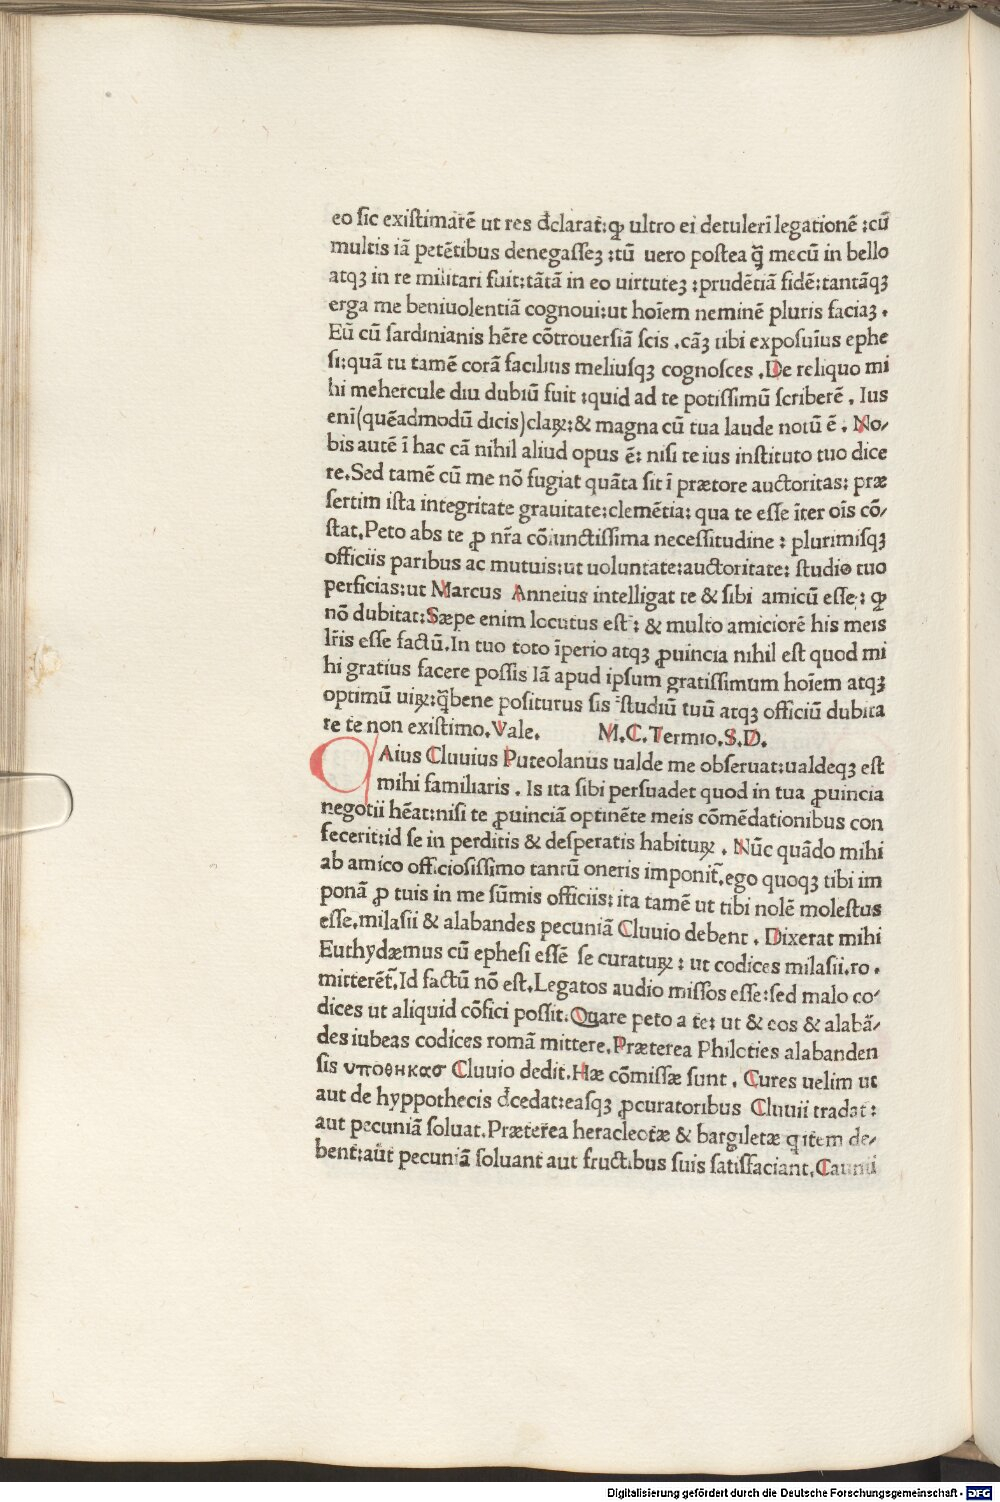 eo sic existimarē ut res d̄clarat:ꝙ ultro ei detulerī legationē :cū
multis iā petētibus denegasseꝫ :tū uero postea q̄̃ mecū in bello
atqꝫ in re militari fuit:tātā in eo uirtuteꝫ :prudētiā fidē:tantāqꝫ
erga me beniuolentiā cognoui:ut hoīem neminē pluris faciaꝫ .
Eū cū sardinianis hēre cōtrouersiā scis .cāꝫ tibi exposuīus ephe
si:quā tu tamē corā facilius meliusqꝫ cognosces .De reliquo mi
hi mehercule diu dubiū fuit :quid ad te potissimū scriberē . Ius
enī(quēadmodū dicis)claꝝ:& magna cū tua laude notū ē . No/
bis autē ī hac cā nihil aliud opus ē: nisi te ius instituto tuo dice
re.Sed tamē cū me nō fugiat quāta sit ī prætore auctoritas: præ
sertim ista integritate grauitate:clemētia: qua te esse īter oīs cō/
stat.Peto abs te ꝓ nr̄a cōiunctissima necessitudine : plurimisqꝫ
officiis paribus ac mutuis:ut uoluntate:auctoritate: studio tuo
perficias:ut Marcus Anneius intelligat te & sibi amicū esse: ꝙ
nō dubitat:Sæpe enim locutus est : & multo amiciorē his meis
lr̄is esse factū.In tuo toto īperio atqꝫ ꝓuincia nihil est quod mi
hi gratius facere possis Iā apud ipsum gratissimum hoīem atqꝫ
optimū uiꝝ:q̄̃bene positurus sis studiū tuū atqꝫ officiū dubita
re te non existimo.Vale. M.C.Termio.S.D.
GAius Cluuius Puteolanus ualde me obseruat:ualdeqꝫ est
mihi familiaris . Is ita sibi persuadet quod in tua ꝓuincia
negotii hēat:nisi te ꝓuinciā optinēte meis cōmēdationibus con
fecerit:id se in perditis & desperatis habituꝝ . Nūc quādo mihi
ab amico officiosissimo tantū oneris imponit̄.ego quoqꝫ tibi im
ponā ꝓ tuis in me sūmis officiis: ita tamē ut tibi nolē molestus
esse.milasii & alabandes pecuniā Cluuio debent . Dixerat mihi
Euthydæmus cū ephesi essē se curatuꝝ : ut codices milasii.ro .
mitterēt̄.Id factū nō est.Legatos audio missos esse:sed malo co/
dices ut aliquid cōfici possit.Quare peto a te: ut & eos & alabā/
des iubeas codices romā mittere.Præterea Philoties alabanden
sis υποθηκασ Cluuio dedit.Hæ cōmissæ sunt . Cures uelim ut
aut de hyppothecis d̄cedat:easqꝫ ꝓcuratoribus Cluuii tradat :
aut pecuniā soluat.Præterea heracleotæ & bargiletæ q item de/
bent:aut pecuniā soluant aut fructibus suis satisfaciant.Caunii
Digitalisierung gefördert durch die Deutsche Forschungsgemeinschaft - DFG